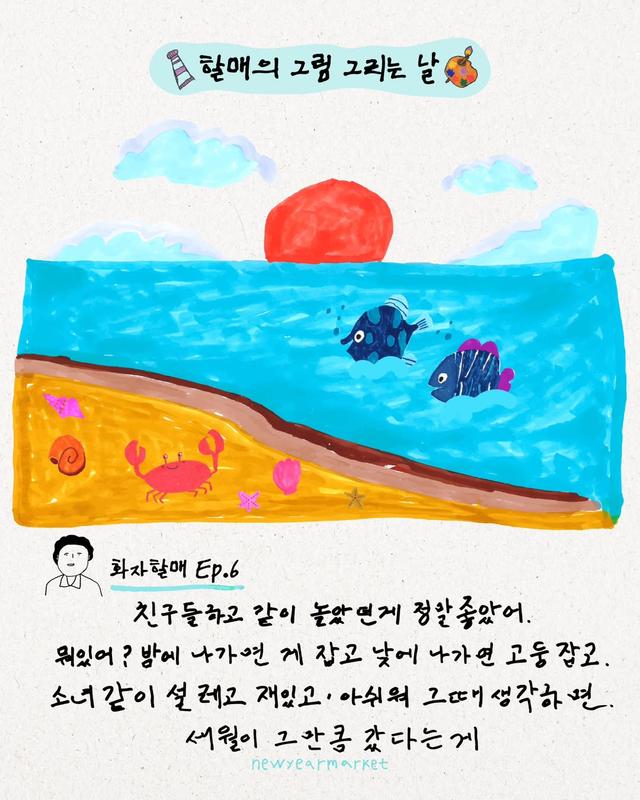 할매의 그림 그리는 날
화자할매 Ep.6
친구들하고 같이 놀았던게 정말좋았어.
뭐있어? 밤에 나가면 게 잡고 낮에 나가면 고둥 잡고.
소녀같이 설레고 재밌고, 아쉬워 그때 생각하면.
세월이 그만큼 갔다는게
newyearmarket